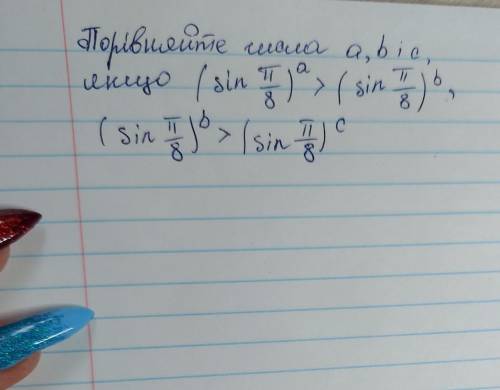 Порівняйте числа a, b і c,
якщо (sin π/8)^a > (sin π/8)^b,
(sin π/8)^b > (sin π/8)^c